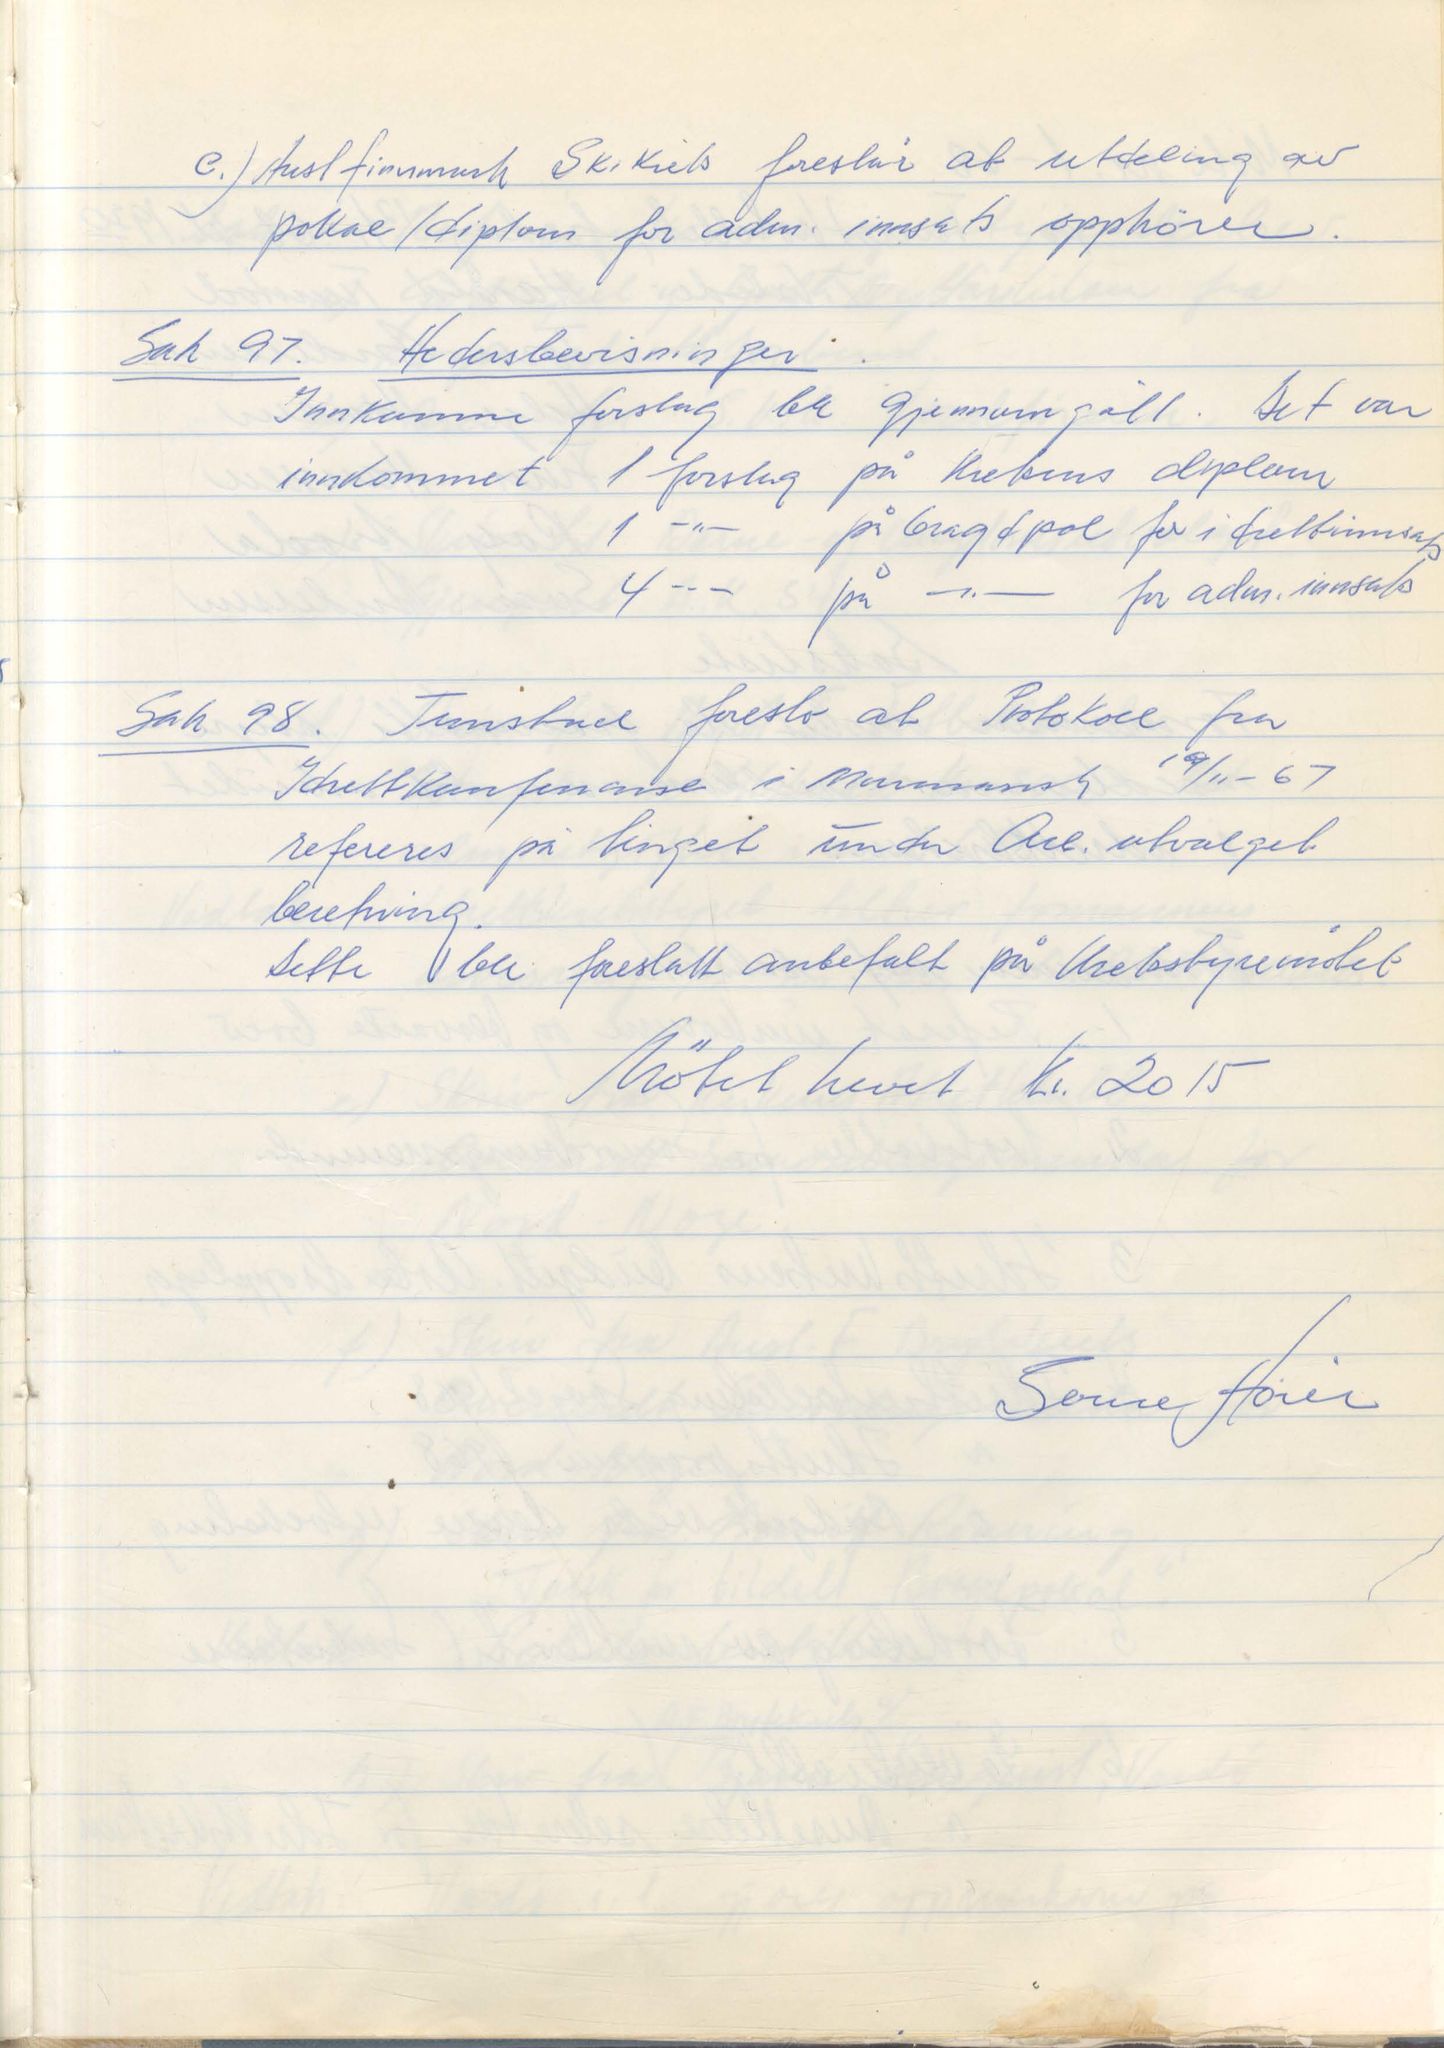 c.) Aust finnmark Skikrets foreslår at utdeling av
pokal/diplom for adm. innsats opphörer.
Sak 97. Hedersbevisninger.
Innkomne forslag ble gjennomgått. Det var
innkommet 1 forslag på Kretsens diplom
1 -"- på bragdpokal for idrettinnsats
4 -"- på -"- for adm. innsats
Sak 98. Tunstad foreslo at Protokoll fra
Idrettkonferanse i Murmansk 19/11-67
refereres på tinget under Arb. utvalget
beretning.
Dette ble foreslått anbefalt på Kretsstyremötet
Mötet hevet kl. 2015